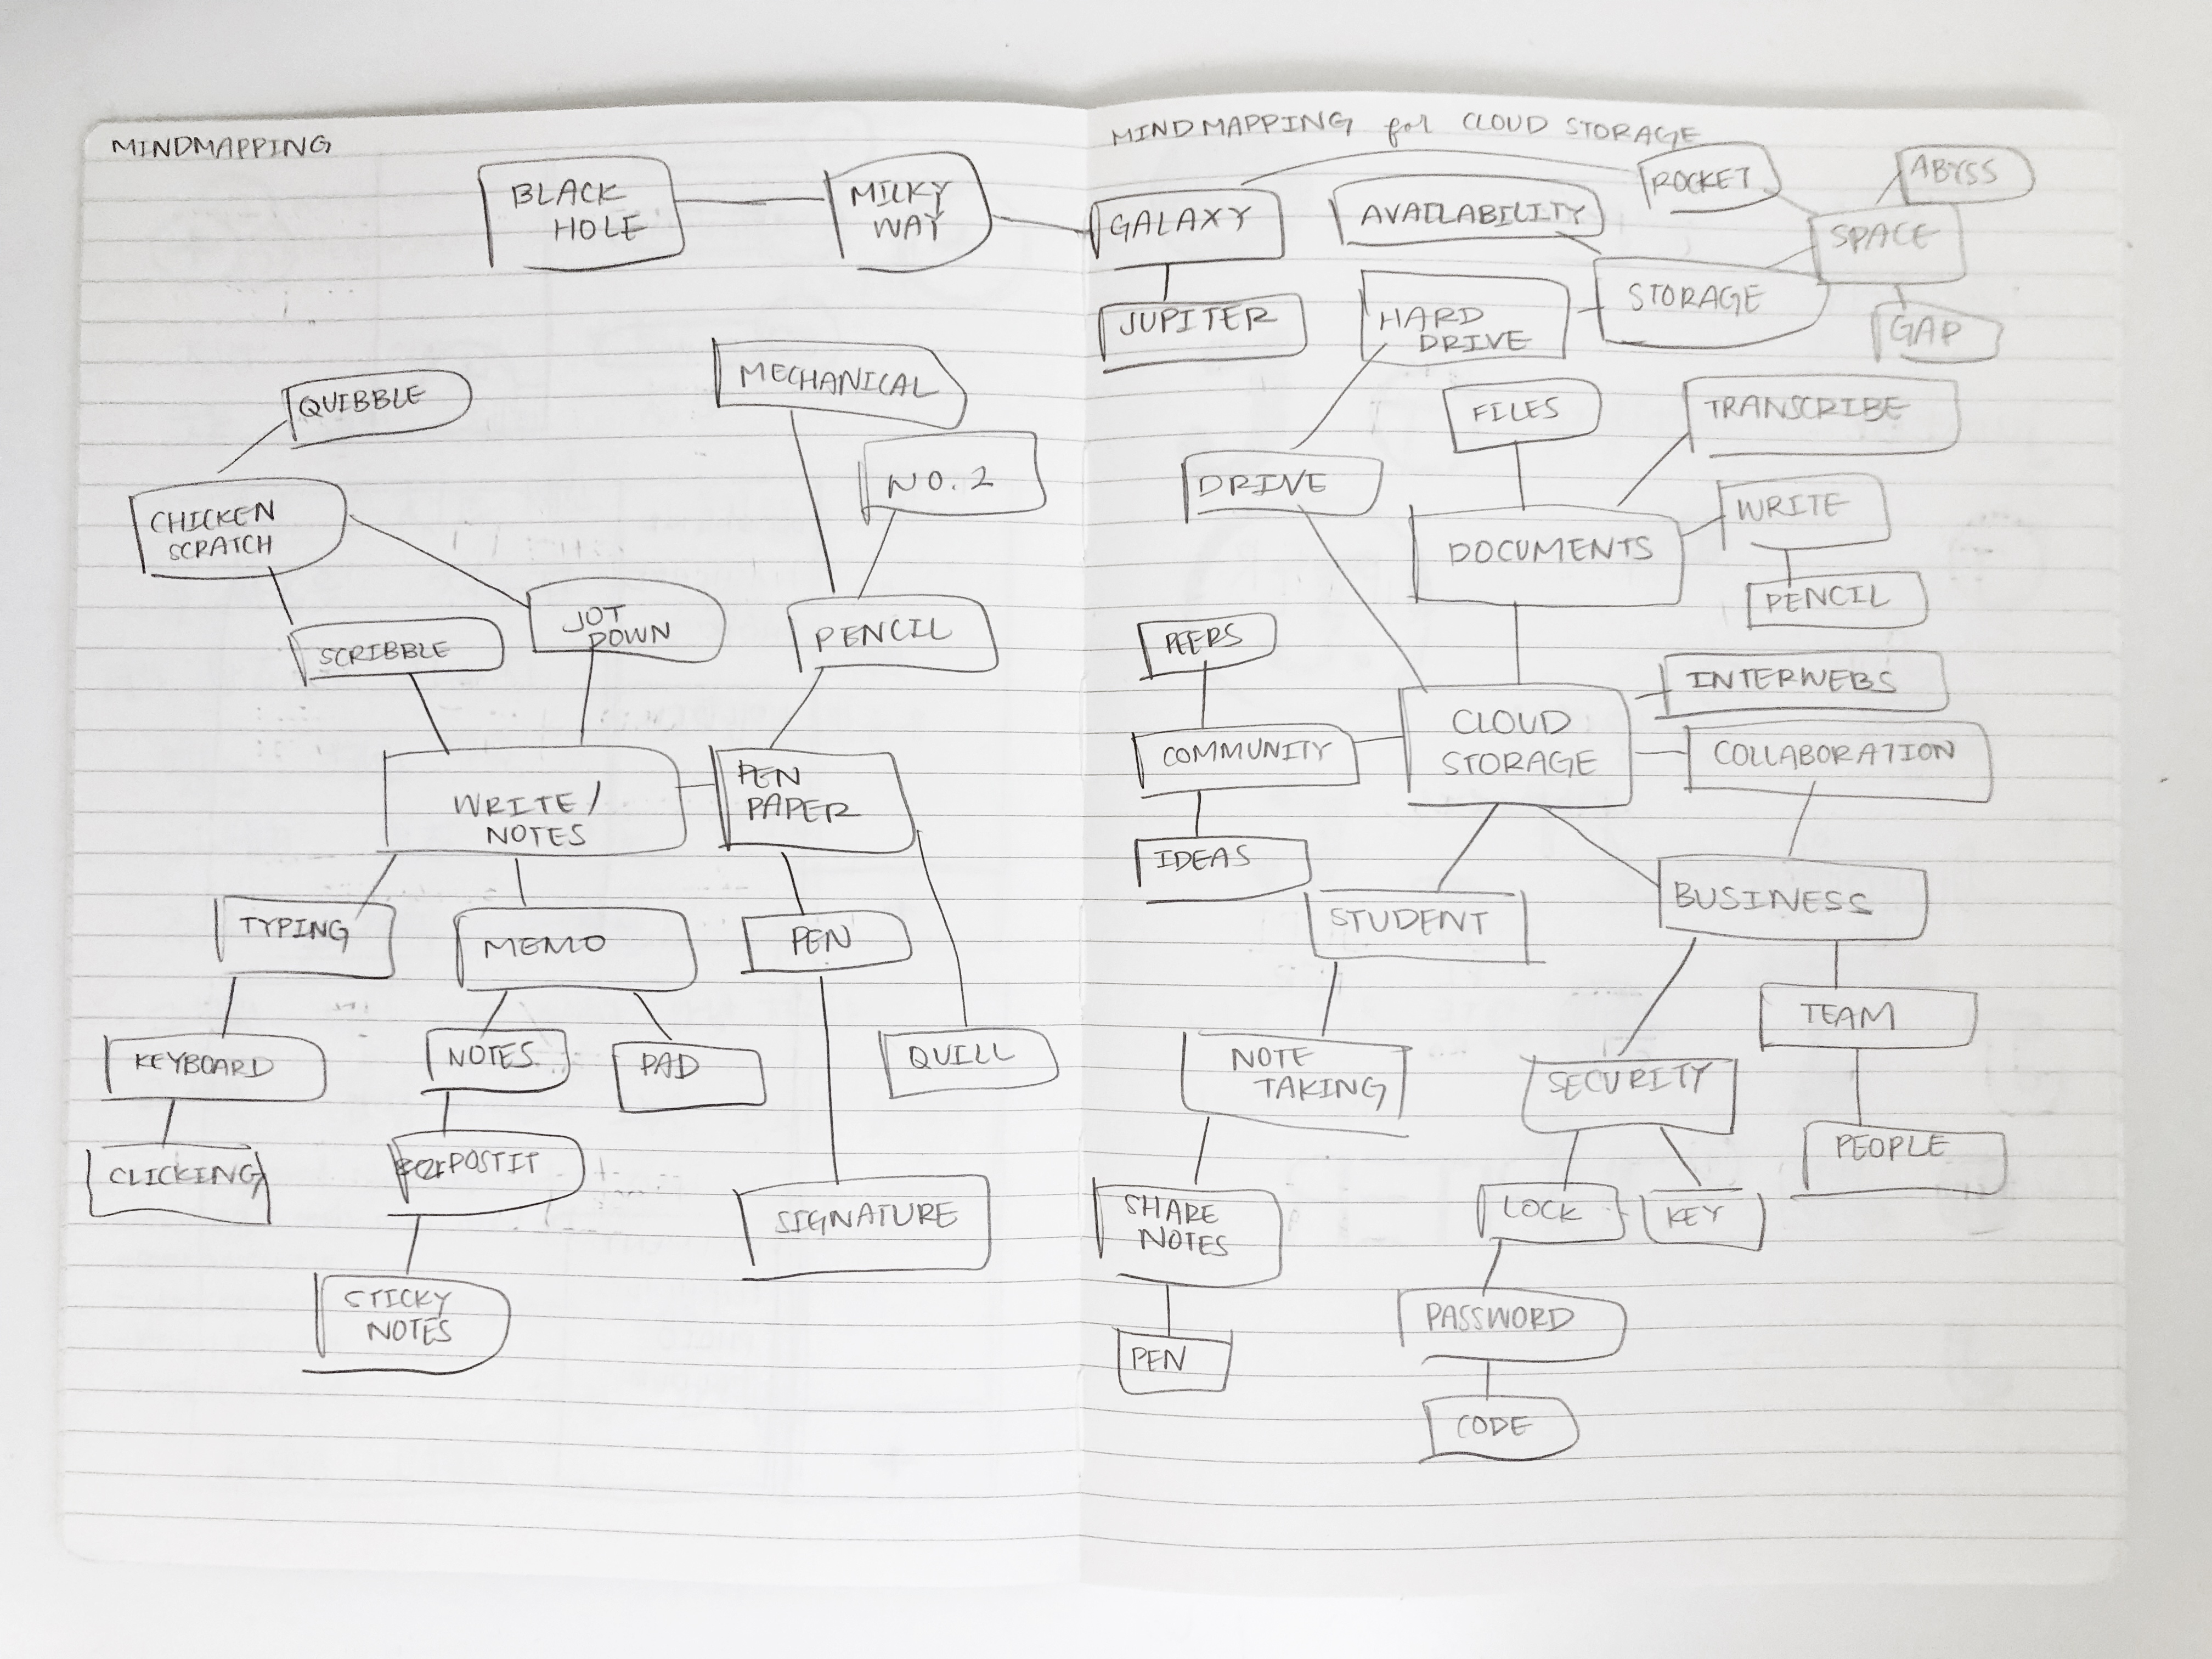 MINDMAPPING
BLACK
HOLE
MILKY
WAY
QUIBBLE
MECHANICAL
NO. 2
CHICKEN
SCRATCH
SCRIBBLE
JOT
DOWN
PENCIL
WRITE /
NOTES
PEN
PAPER
TYPING
MEMO
PEN
KEYBOARD
NOTES
PAD
QUILL
CLICKING
POSTIT
SIGNATURE
STICKY
NOTES
MINDMAPPING for CLOUD STORAGE
GALAXY
AVAILABILITY
ROCKET
ABYSS
SPACE
JUPITER
HARD
DRIVE
STORAGE
GAP
FILES
TRANSCRIBE
DRIVE
DOCUMENTS
WRITE
PENCIL
PEERS
INTERWEBS
COMMUNITY
CLOUD
STORAGE
COLLABORATION
IDEAS
STUDENT
BUSINESS
TEAM
NOTE
TAKING
SECURITY
PEOPLE
SHARE
NOTES
LOCK
KEY
PEN
PASSWORD
CODE